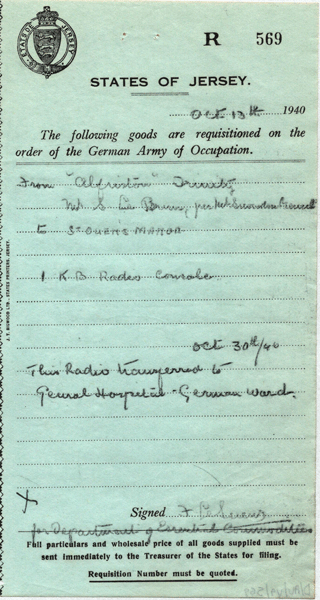 STATES OF JERSEY
R 569
STATES OF JERSEY.
Oct 13th 1940
The following goods are requisitioned on the
order of the German Army of Occupation.
From "Alfriston" Trinity,
S Le Brun, per
to ST OUENS MANOR
1 K B Radio Console
Oct 30th/40
This Radio transferred to
General Hospital - German Ward.
Signed
for Department of Essential Commodities
Full particulars and wholesale price of all goods supplied must be
sent immediately to the Treasurer of the States for filing.
Requisition Number must be quoted.